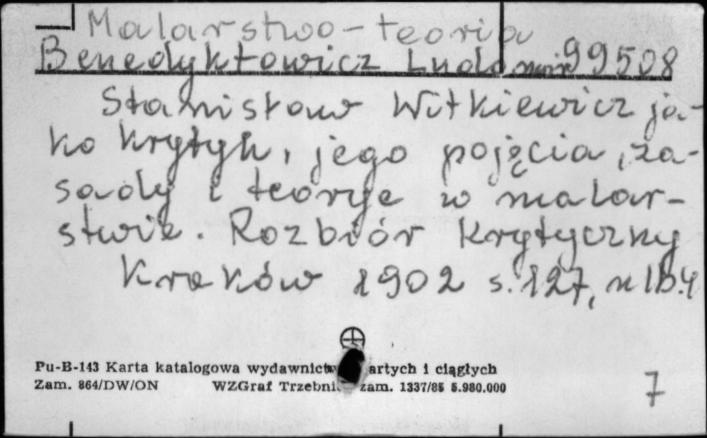 Malarstwo - teoria
Benedyktowicz Ludomir 99508
Stanisław Witkiewicz ja-
ko krytyk, jego pojęcia, za-
sady i teorye w malar-
stwie. Rozbiór krytyczny
Kraków 1902 s. 127, nlb. 4
Pu-B-143 Karta katalogowa wydawnictw artych i ciągłych
Zam. 864/DW/ON WZGraf Trzebni zam. 1337/85 5.980.000
7